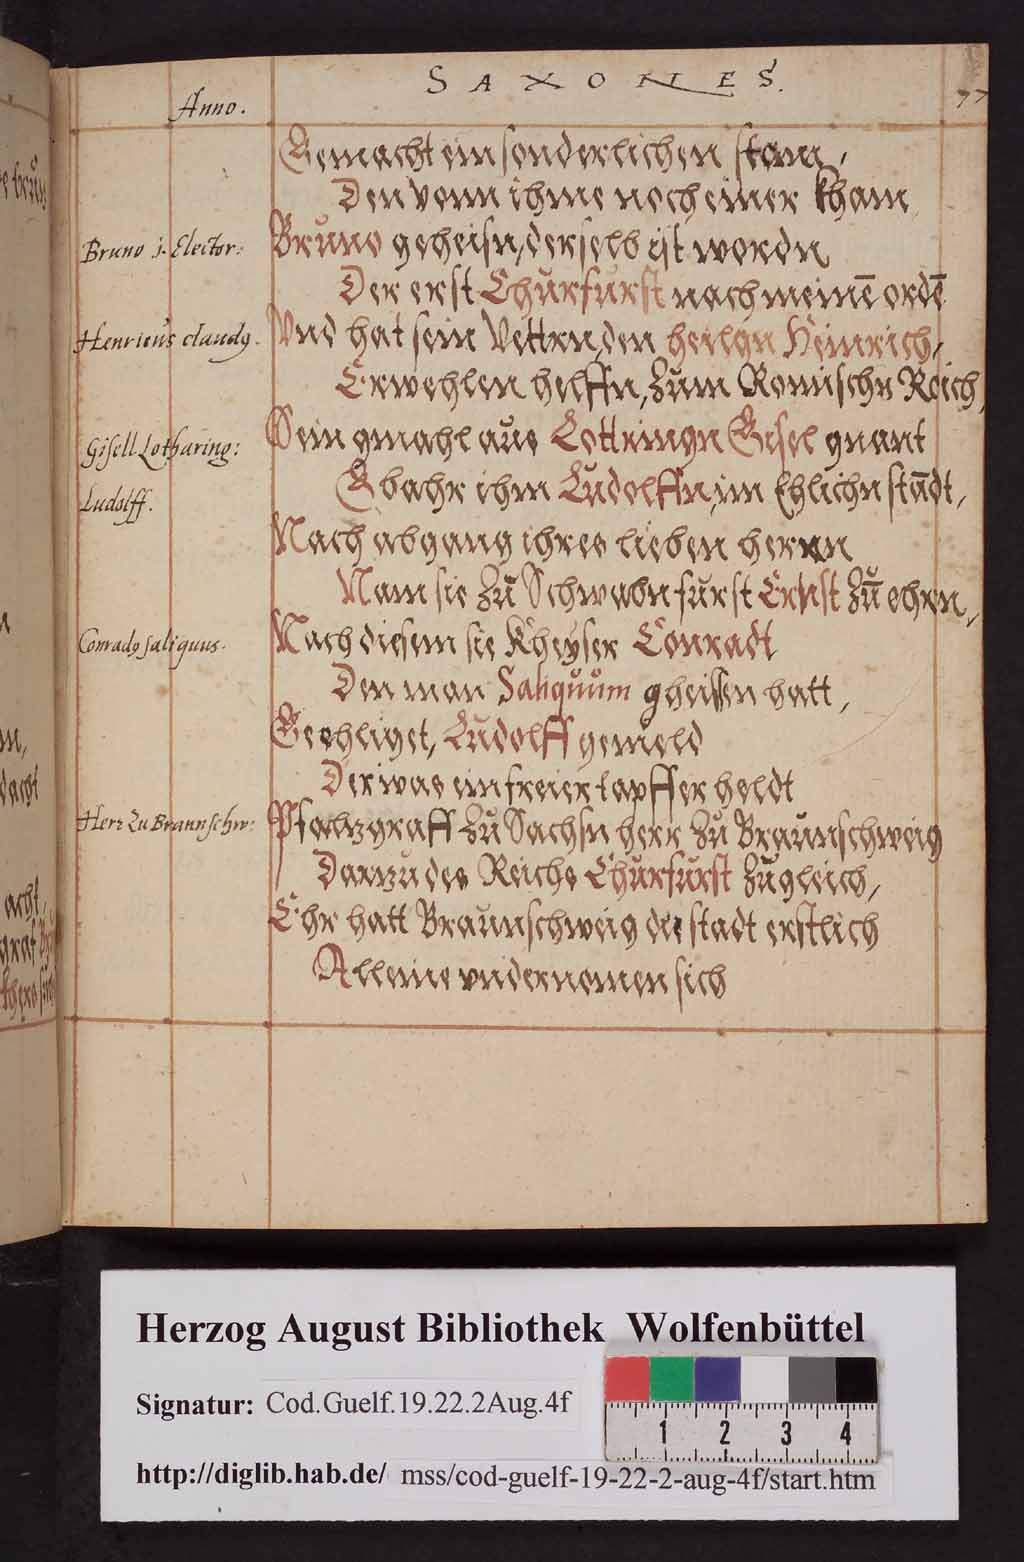 SAXONES.
77
Anno.
Gemacht ein sonderlichen stam,
Den vonn ihme noch einer kham
Bruno j. Elector:
Bruno geheisn, derselb ist wordn
Der erst Churfurst nach meinē ordē
Henricus claudꝯ.
Vnd hat sein Vettrn, den heilgn Heinrich,
Erwehlen helffn, Zum Romischn Reich,
Gisell Lotharing:
Sein gmahl aus Lottringn Gisel gnant
Ludolff.
Gbahr ihm Ludolffn, im Ehlichn stādt,
Nach abgang ihres lieben herrn
Nam sie Zu Schwabn furst Ernst Zu ehrn,
Conradꝯ saliquus.
Nach diesem sie Kheyser Conradt
Den man Saliquum gheissen hatt,
Geehliget, Ludolff gemeld
Der was ein freier tapffer heldt
Herr Zu Braunschw:
Pfaltzgraff Zu Sachsn herr Zu Braunschweig
Dartzu des Reichs Churfurst Zugleich,
Ehr hatt Braunschweig die stadt erstlich
Alleine vndernomen sich
Herzog August Bibliothek Wolfenbüttel
Signatur: Cod.Guelf.19.22.2Aug.4f
1 2 3 4
http://diglib.hab.de/ mss/cod-guelf-19-22-2-aug-4f/start.htm